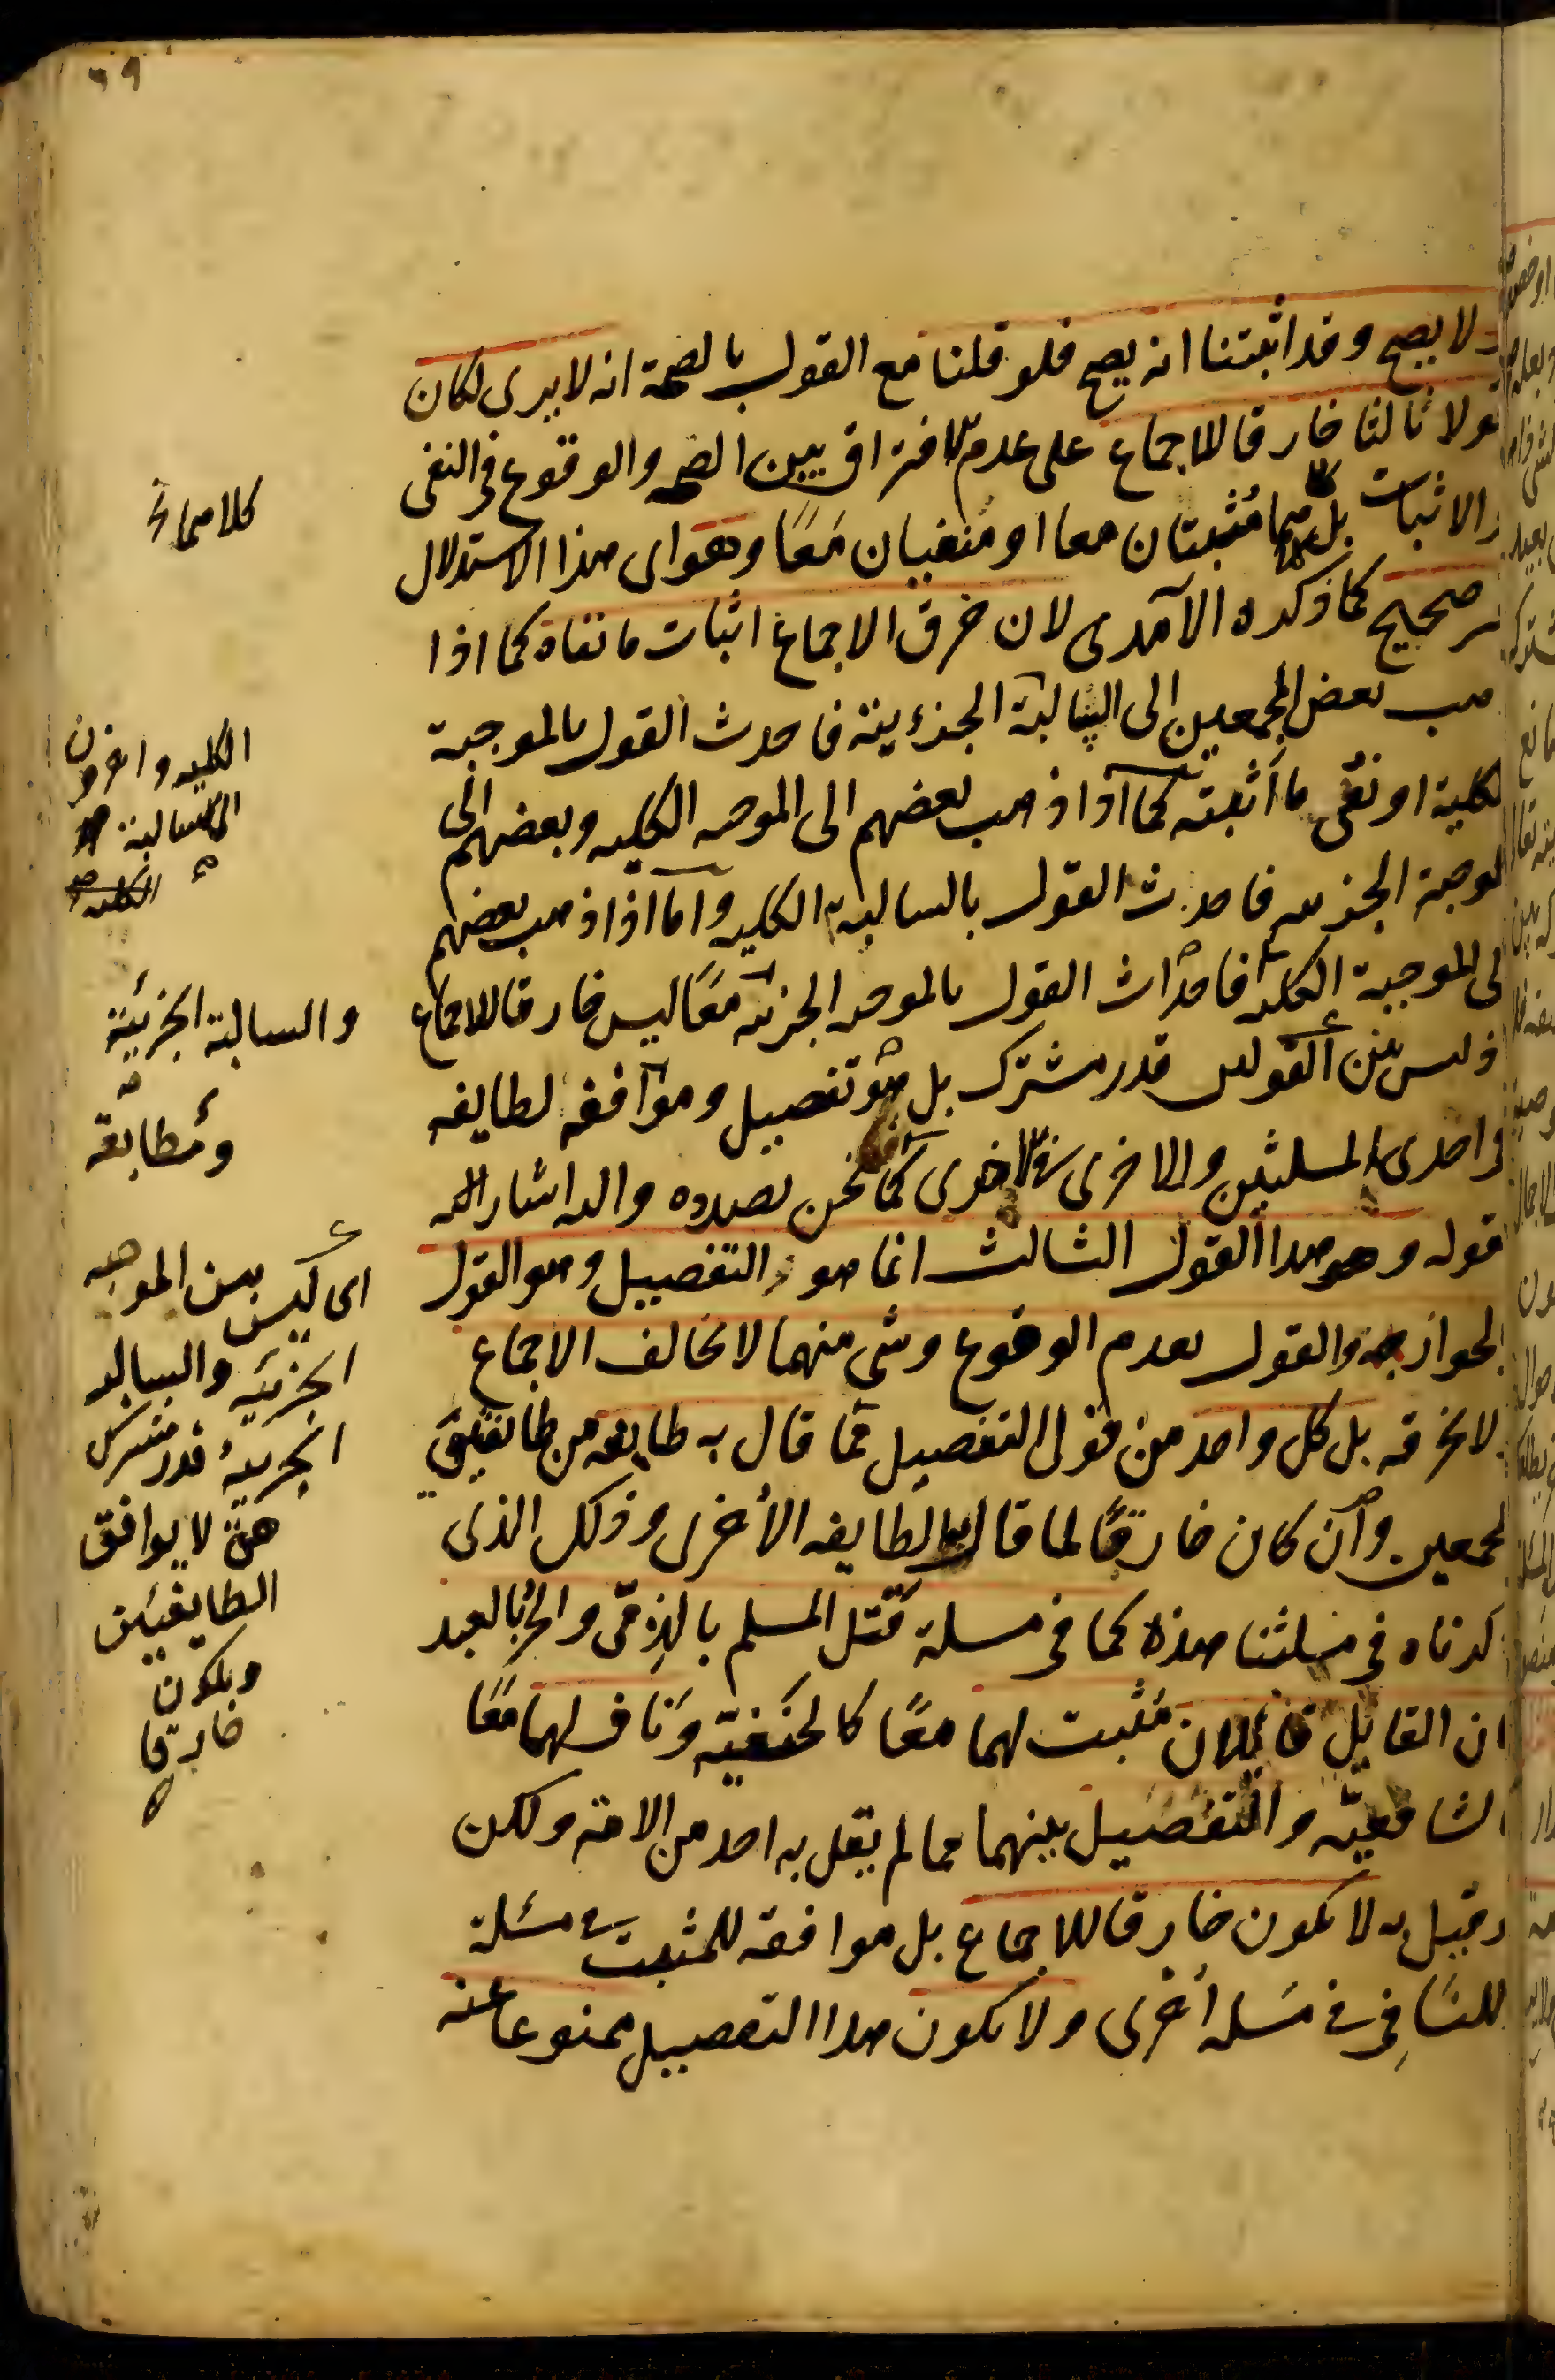 ٦٩
لا يصح وقد اثبتنا انه يصح فلو قلنا مع القول بالصحة انه لا يرى لكان
قولا ثالثا خارقا للاجماع على عدم الافتراق بين الصحه والوقوع فى النفى
والاثبات بل هما مُثبتان معا او مُنفيان مَعًا وهو اى هذا الاستدلال
صحيح كما ذكره الآمدى لان خرق الاجماع اثبات ما نفاه كما اذا
بعض المجمعين الى السالبة الجزءية فاحدث القول بالموجبة
الكلية او نفى ما أثبته كما اذا ذهب بعضهم الى الموجبه الكليه وبعضهم الى
الموجبة الجزييه فاحدث القول بالسالبة الكليه واما اذا ذهب بعضهم
الى الموجبة الكليه فاحداث القول بالموجبه الجزئيه معًا ليس خارقا للاجماع
اذ ليس بين القولين قدر مشترك بل هو تفصيل وموافقه لطايفه
فى احدى المسلتين والاخرى فى الاخرى كما نحن بصدده واليه اشار الى
قوله وهو هذا القول الثالث انما هو التفصيل وهو القول
بالجواز والقول بعدم الوقوع وشى منهما لا يخالف الاجماع
لا يخرقه بل كل واحد من قولى التفصيل مما قال به طايفه من طايفتى
المجمعين وان كان خارقًا لما قال الطايفه الأخرى وذلك الذى
ذكرناه فى مسلتنا هذه كما فى مسلة قتل المسلم بالذمّى والحر بالعبد
ان القايل قايلان مُثبت لهما معًا كالحنَفيّة وناف لهما معًا
كالشافعيّه والتفصيل بينهما مما لم يقل به احد من الامة ولكن
لو قيل به لا يكون خارقا للاجماع بل موافقه للمثبت فى مسئلة
وللنافى فى مسله أخرى ولا يكون هذا التفصيل ممنوعا عنه
كلاهما
الكليه واخرون
الى السالبة
الكليه
والسالبة الجزئية
ومُطابقة
اى ليس بين الموجبه
الجزئيه والسالبه
الجزييه قدر مشترك
لا يوافق
الطايفتين
ويكون
خارقا